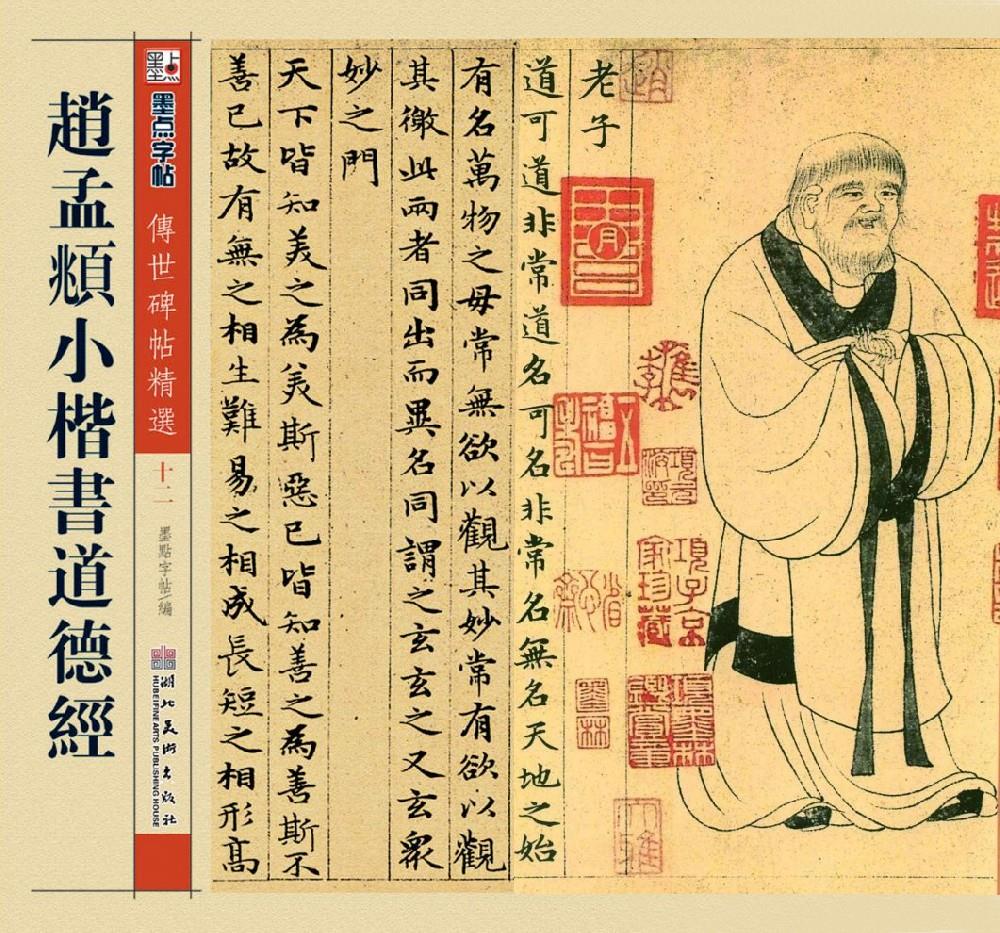 趙孟頫小楷書道德經
墨点
墨点字帖
傳世碑帖精選
十二
墨點字帖/編
湖北美術出版社
HUBEI FINE ARTS PUBLISHING HOUSE
老子
道可道非常道名可名非常名無名天地之始
有名萬物之母常無欲以觀其妙常有欲以觀
其徼此兩者同出而異名同謂之玄玄之又玄衆
妙之門
天下皆知美之為美斯惡已皆知善之為善斯不
善已故有無之相生難易之相成長短之相形高
項子京
家珍藏